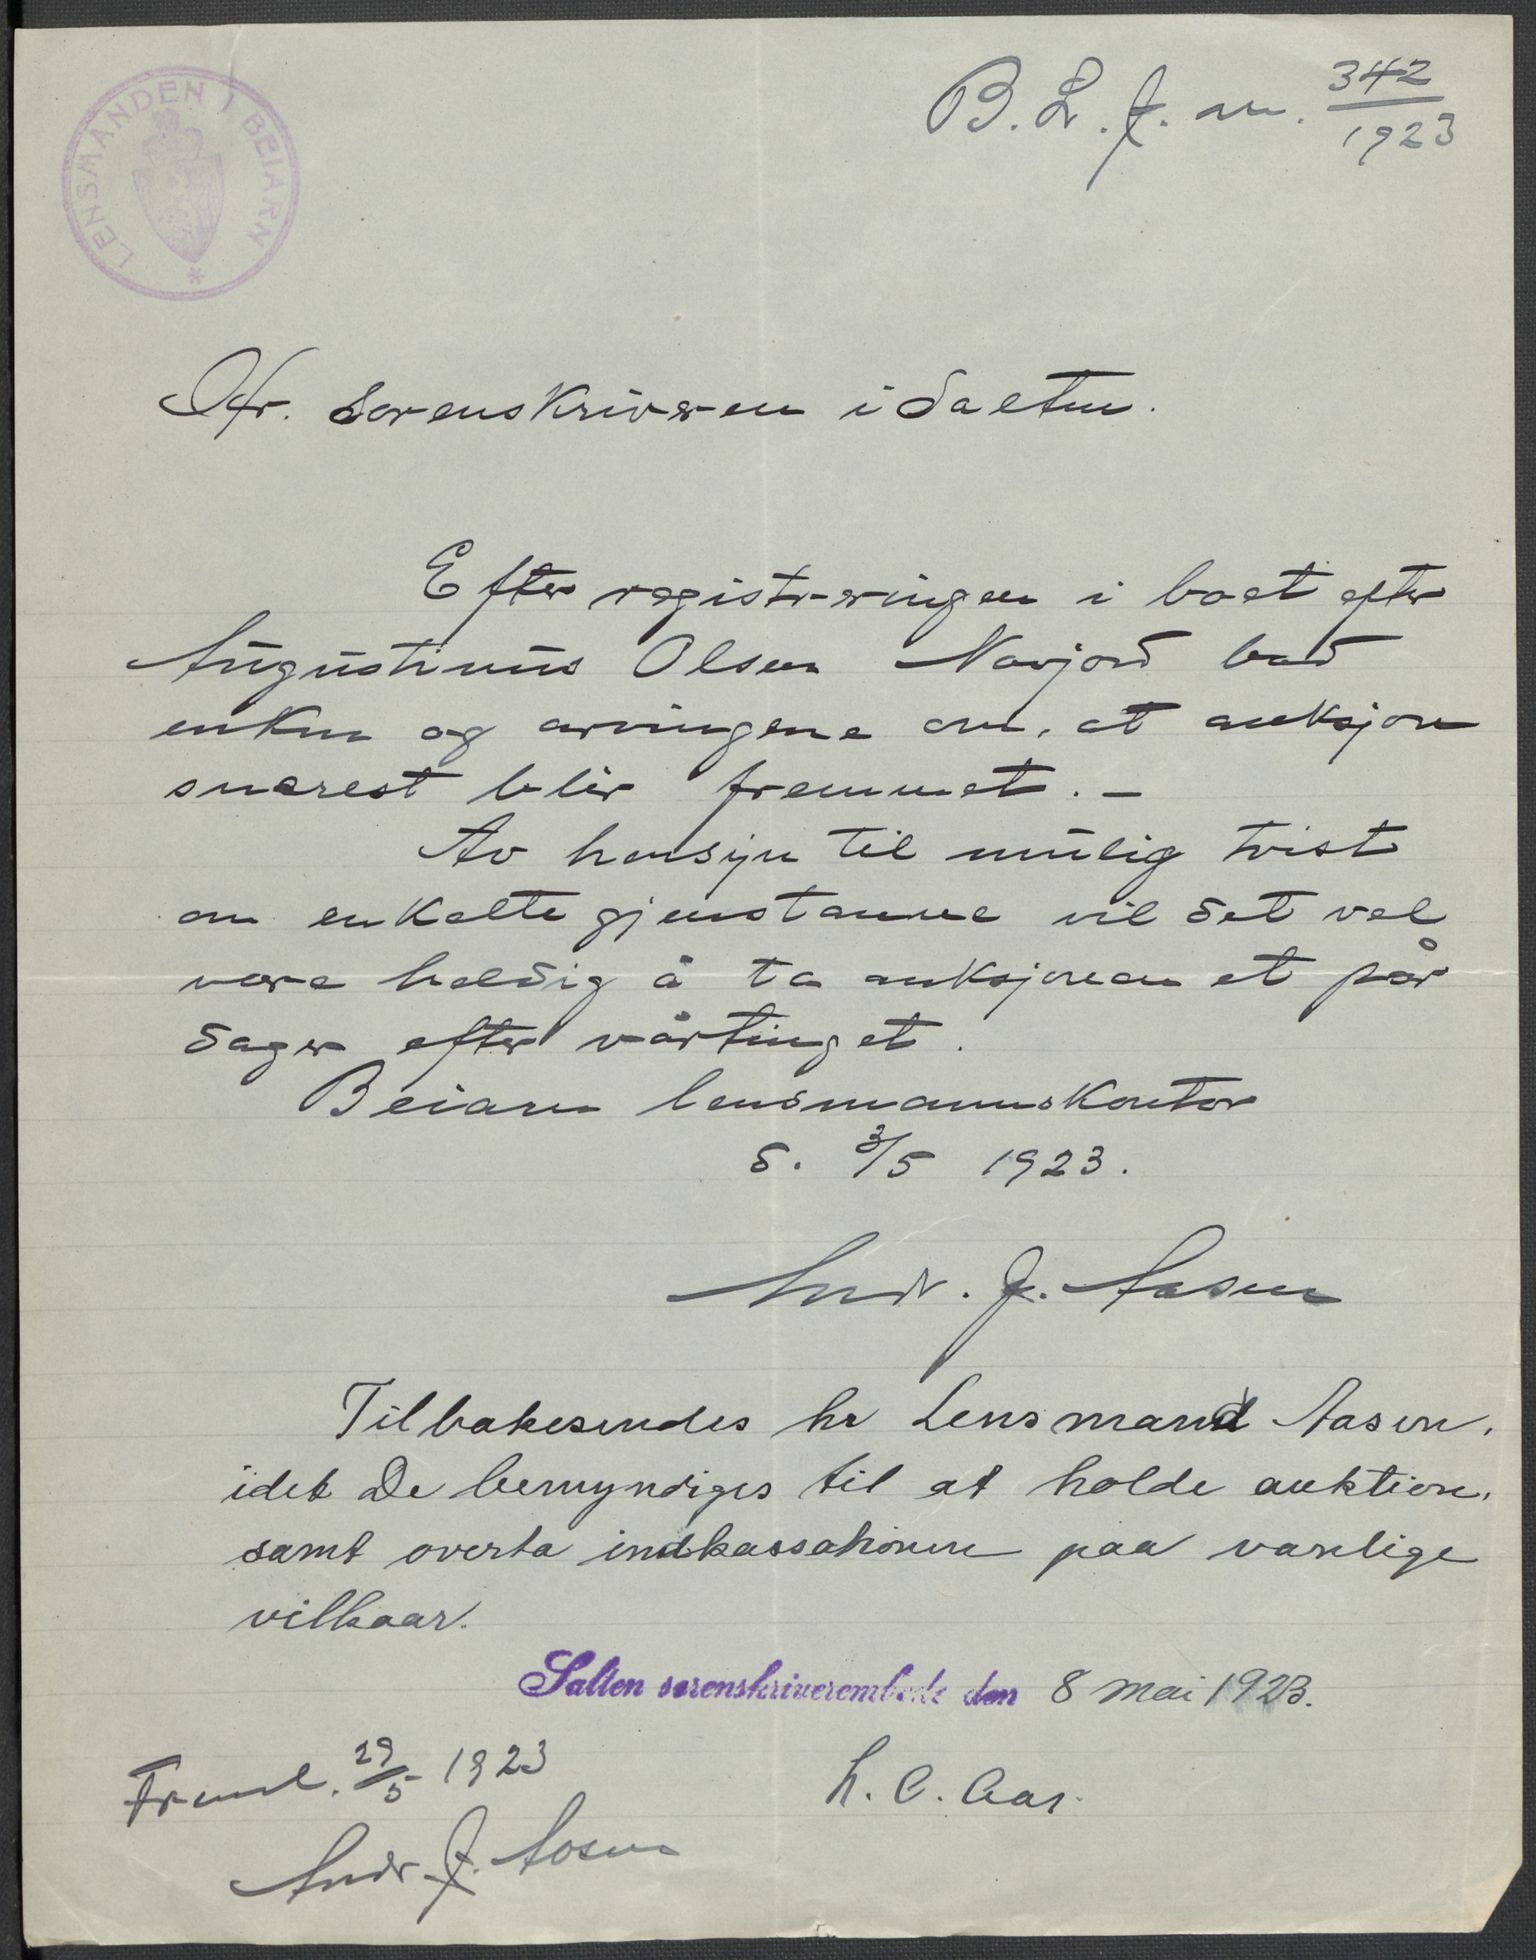 LENSMANDEN I BEIARN
B. L. J. nr. 342/1923
Hr. Sorenskriveren i Salten.
Efter registreringen i boet efter
Augustinus Olsen Navjord bad
enken og arvingene om, at auksjon
snarest blir fremmet. –
Av hensyn til mulig tvist
om enkelte gjenstanne vil det vel
være heldig å ta auksjonen et pår
dager efter vårtinget.
Beiarn lensmannskontor
d. 3/5 1923.
Andr. J. Aasen
Tilbakesendes hr Lensmand Aasen,
idet De bemyndiges til at holde auktion,
samt overta indkassationen paa vanlige
vilkaar.
Salten sorenskriverembede den 8 mai 1923.
Freml. 29/5 1923
L. C. Aas.
Andr. J. Aasen